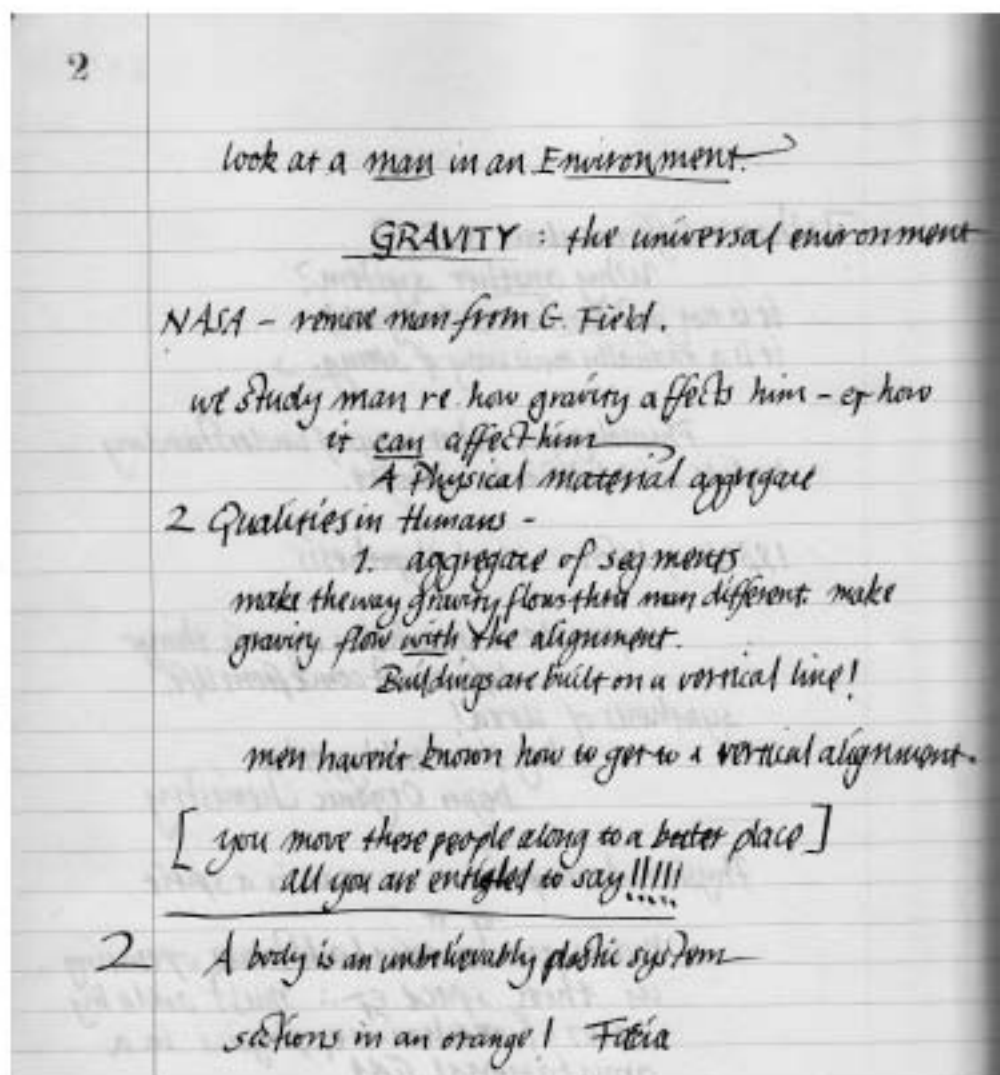 2
look at a man in an Environment.
GRAVITY : the universal environment
NASA - remove man from G. Field.
we study man re how gravity affects him - & how
it can affect him
A Physical material aggregate
2 Qualities in Humans -
1. aggregate of segments
make the way gravity flows thru man different. make
gravity flow with the alignment.
Buildings are built on a vertical line!
men haven't known how to get to a vertical alignment.
[ you move these people along to a better place ]
all you are entitled to say !!!!!
2 A body is an unbelievably plastic system
sections in an orange !